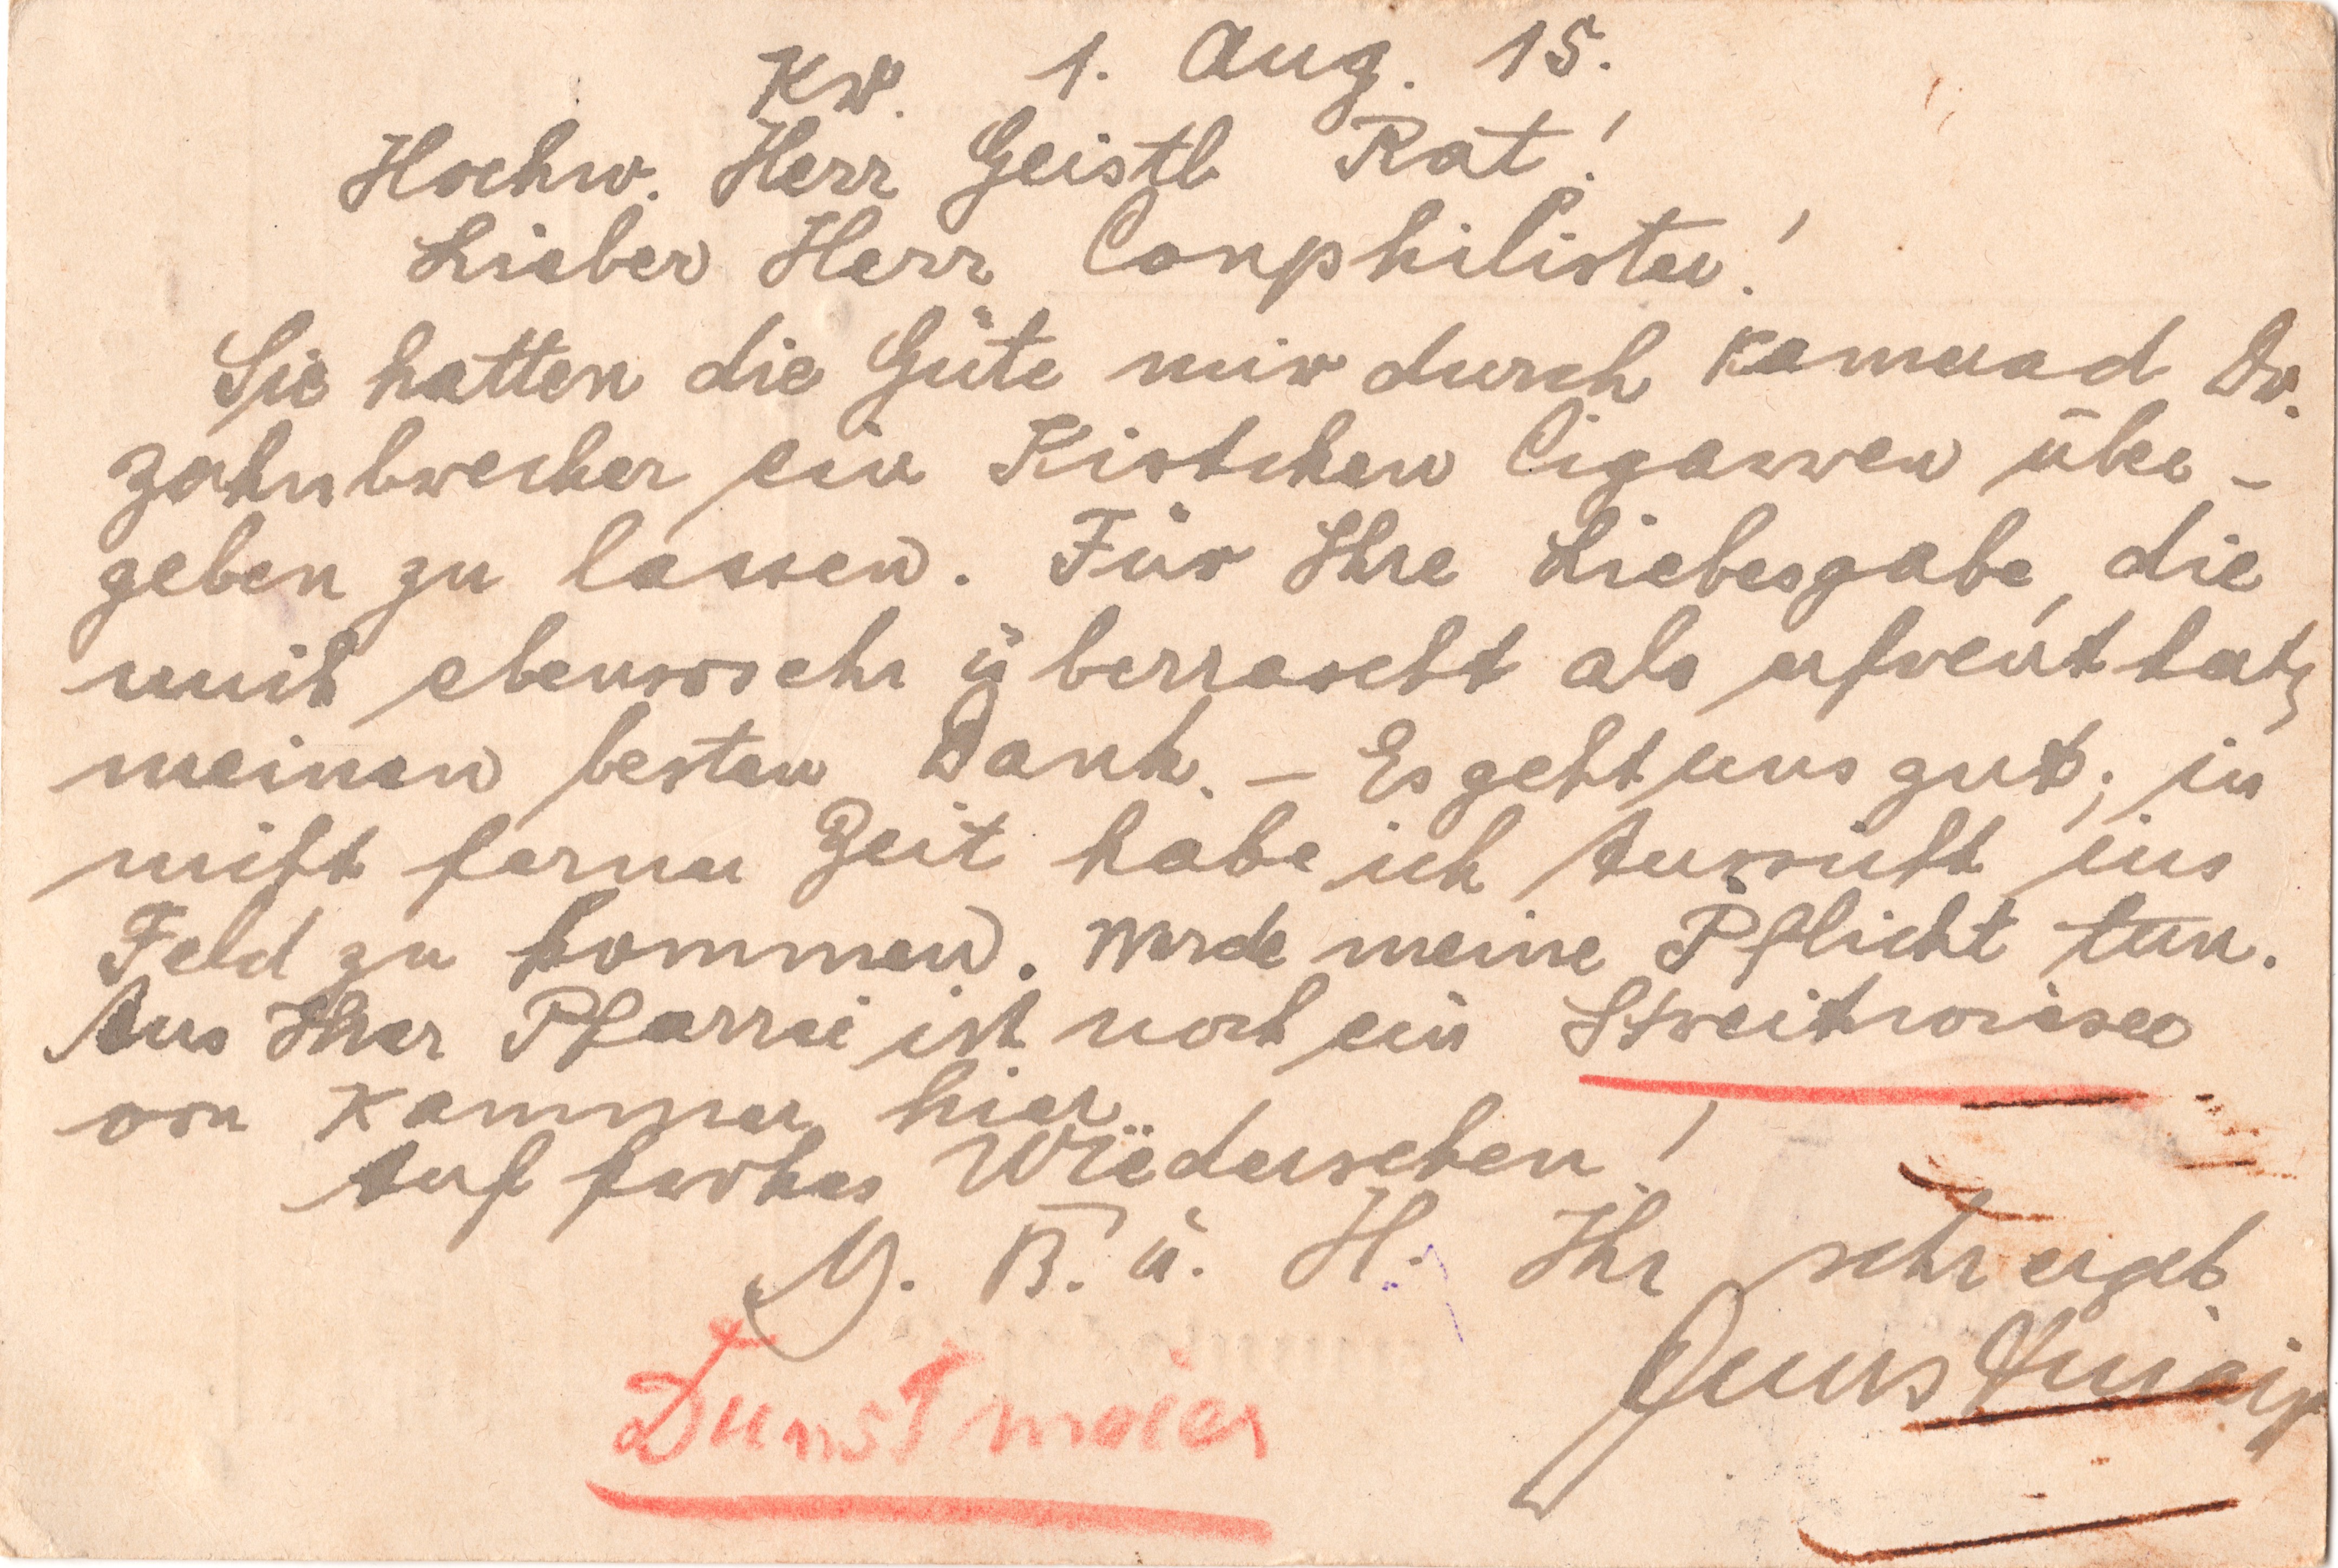 Kw. 1. Aug. 15.
Hochw. Herr Geistl Rat!
Lieber Herr Conphilister!
Sie hatten die Güte mir durch Kamerad Dr.
Zahnbrecher ein Kistchen Cigarren über-
geben zu lassen. Für Ihre Liebesgabe, die
mich ebensosehr überrascht als erfreut hat,
meinen besten Dank. – Es geht uns gut; in
nicht ferner Zeit habe ich Aussicht ins
Feld zu kommen. Werde meine Pflicht tun.
Aus Ihrer Pfarrei ist noch ein Streitwieser
von Kammer hier.
Auf frohes Wiedersehen!
M. B. u. H. Ihr sehr ergeb.
Dunstmaier